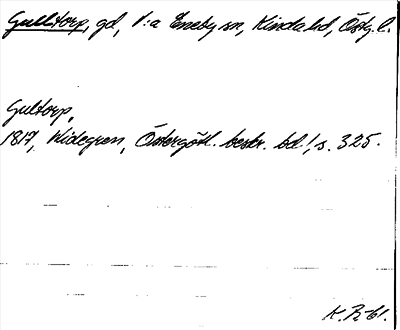 Gulltorp, gd, V:a Eneby sn, Kinda hd, Östg. l.
Gultorp,
1817, Widegren, Östergötl. beskr. bd. 1, s. 325.
K. R-61.